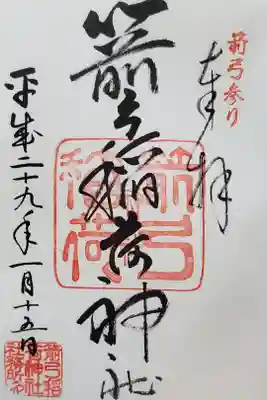 箭弓参り
奉拝
箭弓稲荷神社
箭弓
稲荷
平成二十九年一月十五日